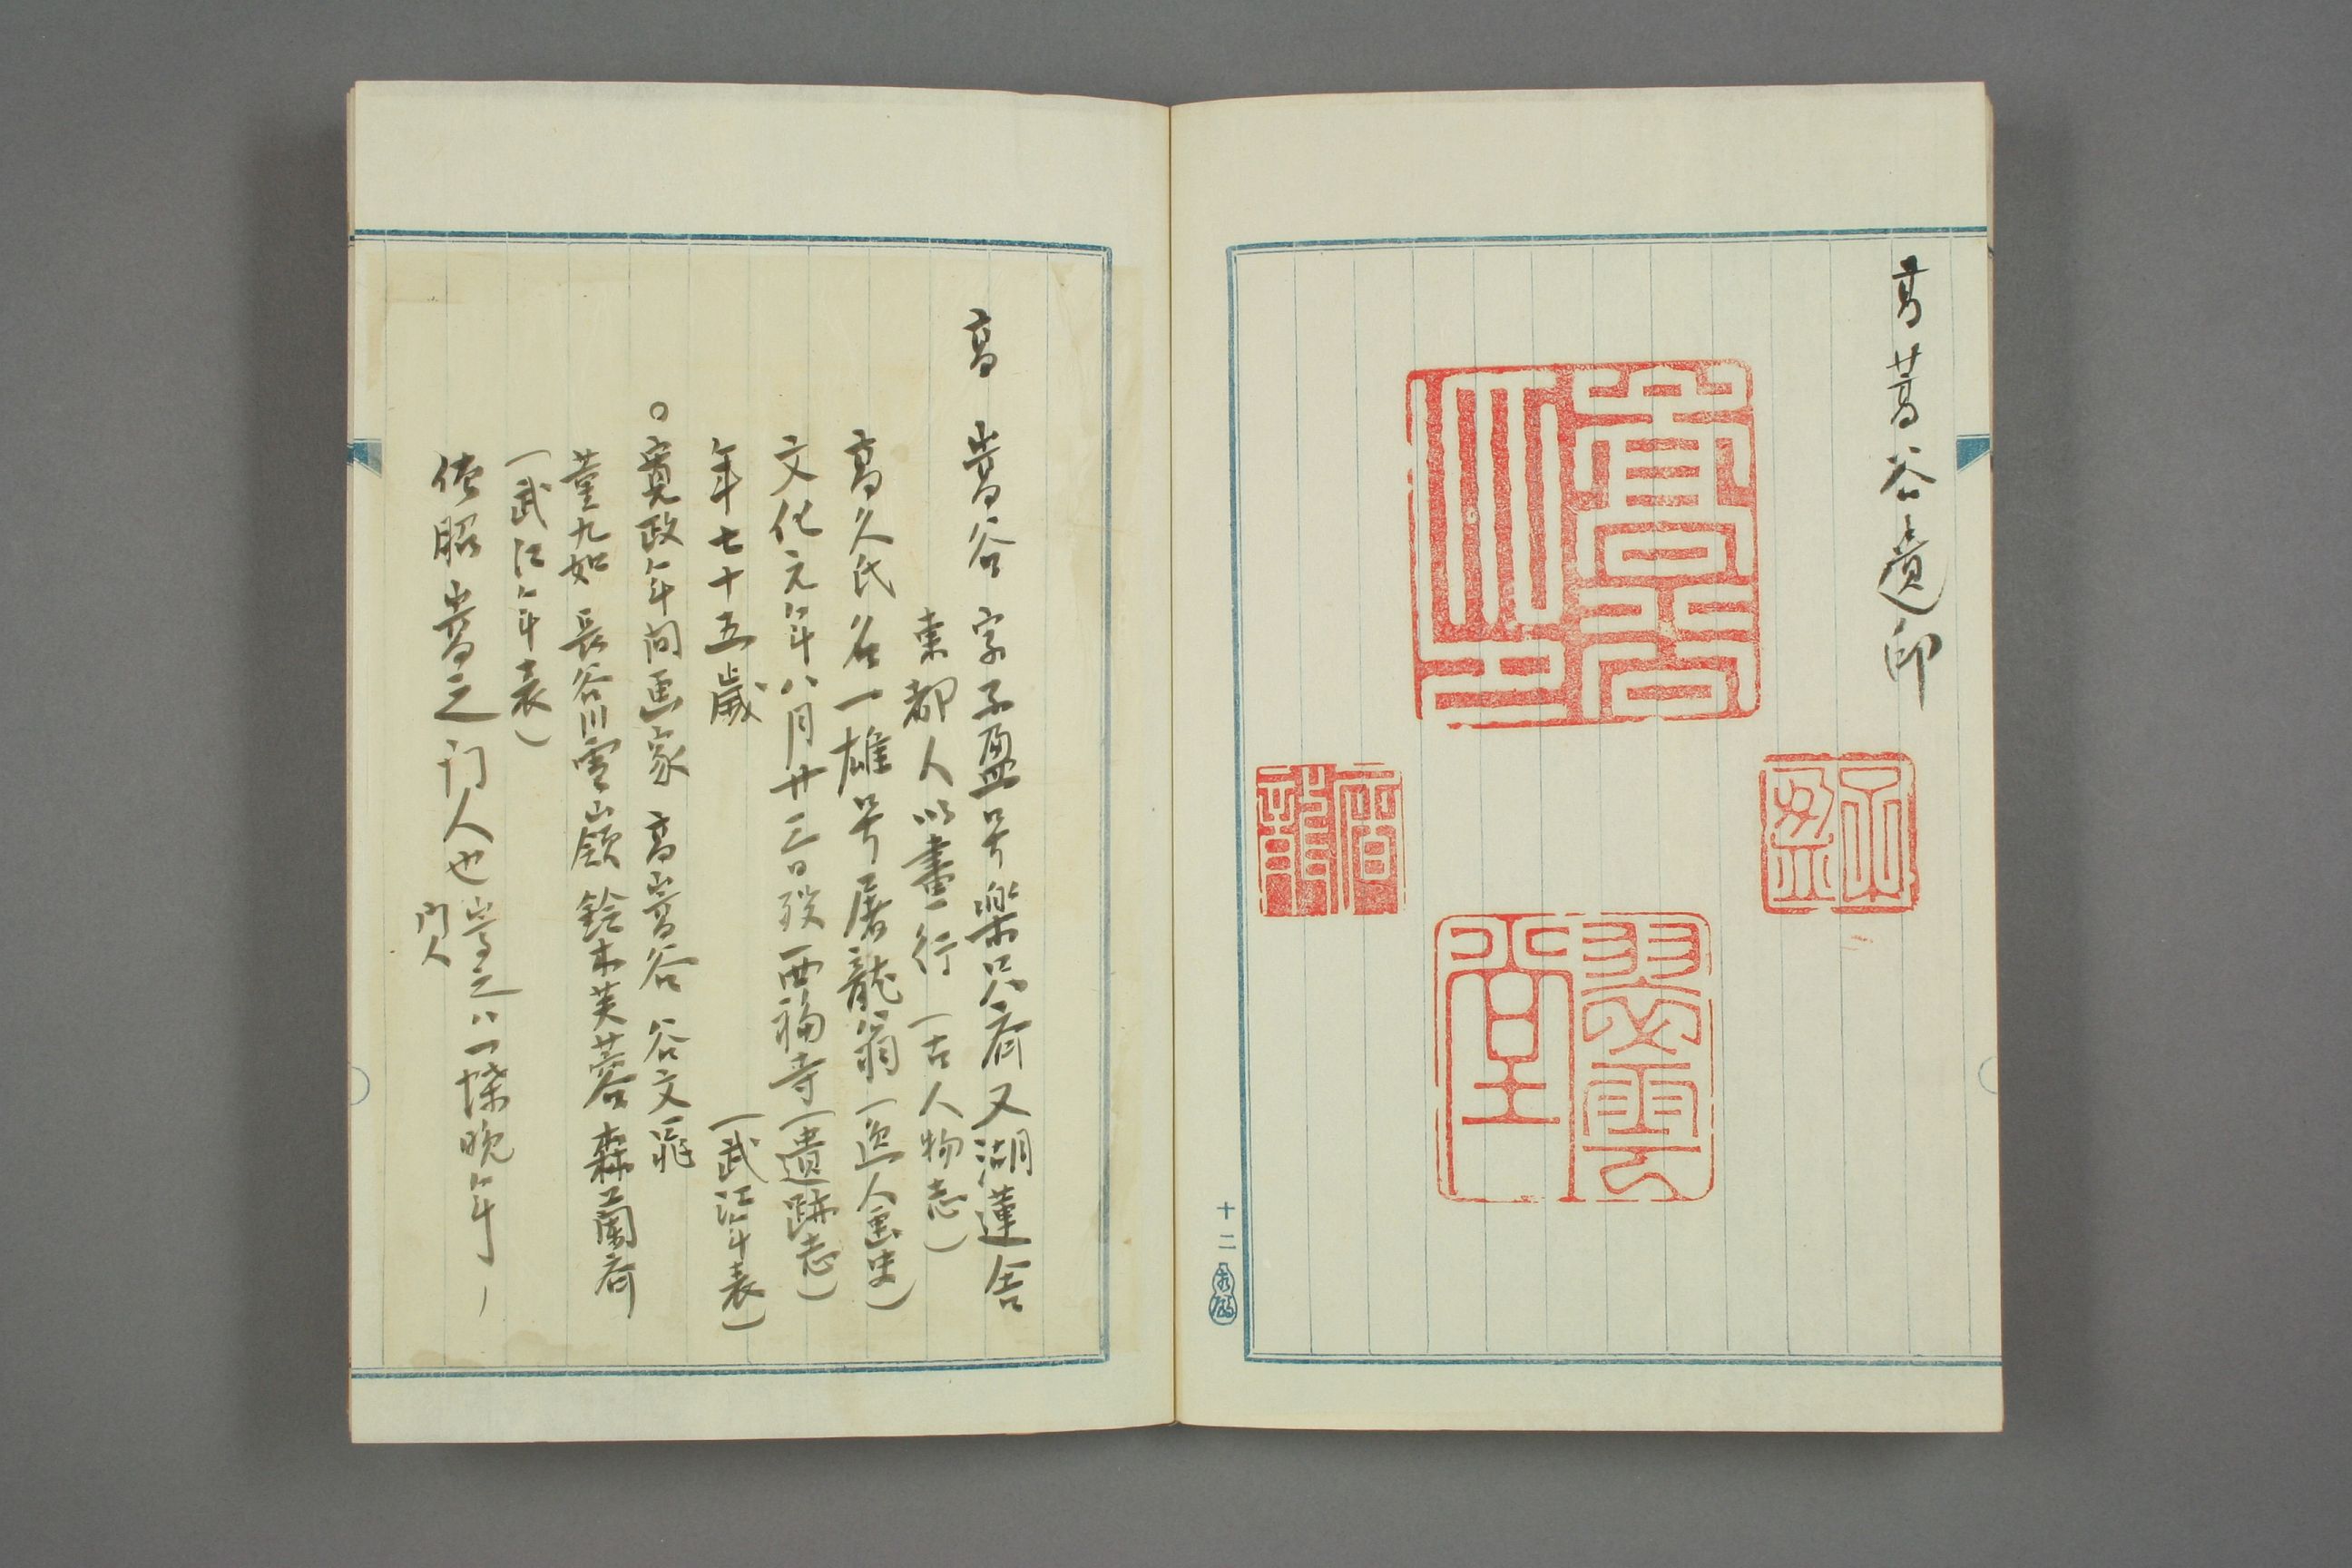 高嵩谷遺印
屠龍
翠雲堂
十二
高 嵩谷 字子盈号楽只斎又湖蓮舎
東都人以畫行(古人物志)
高久氏名一雄号屠龍翁(逸人画史)
文化元年八月廿三日歿 西福寺(遺跡志)
年七十五歳 (武江年表)
○寛政年間画家 高嵩谷 谷文晁
董九如 長谷川雪嶺 鈴木芙蓉 森蘭斎
(武江年表)
佐脇嵩之门人也嵩之ハ一蝶晩年ノ
门人